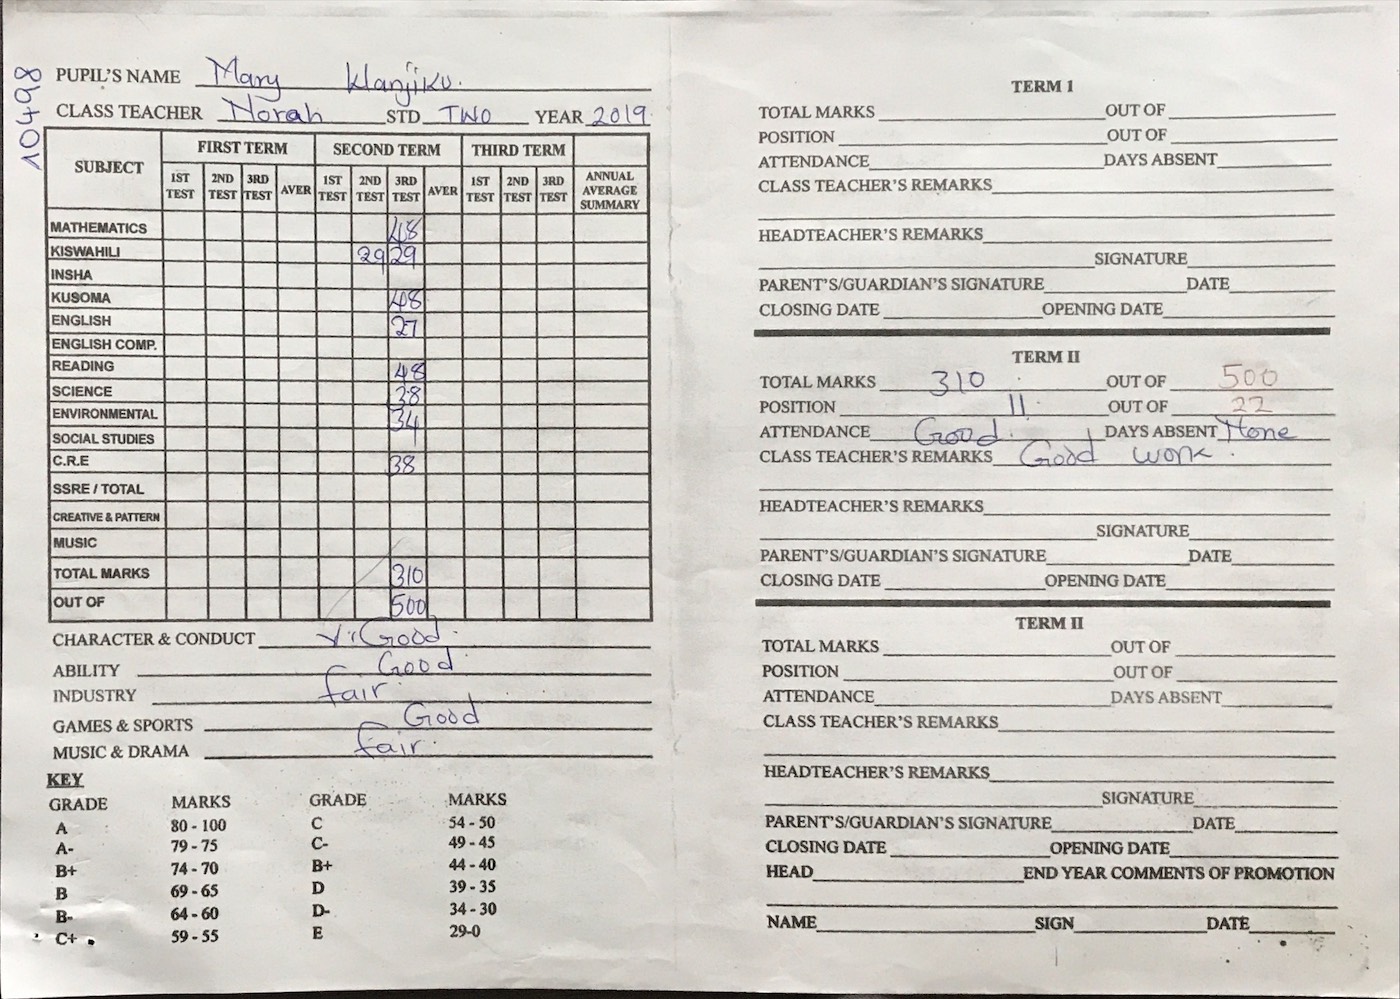 10498
PUPIL'S NAME Mary Wanjiku.
CLASS TEACHER Norah STD TWO YEAR 2019
SUBJECT FIRST TERM SECOND TERM THIRD TERM
1ST TEST 2ND TEST 3RD TEST AVER 1ST TEST 2ND TEST 3RD TEST AVER 1ST TEST 2ND TEST 3RD TEST ANNUAL AVERAGE SUMMARY
MATHEMATICS 48
KISWAHILI 29 29
INSHA
KUSOMA 48
ENGLISH 27
ENGLISH COMP.
READING 48
SCIENCE 38
ENVIRONMENTAL 34
SOCIAL STUDIES
C.R.E 38
SSRE / TOTAL
CREATIVE & PATTERN
MUSIC
TOTAL MARKS 310
OUT OF 500
CHARACTER & CONDUCT V. Good.
ABILITY Good.
INDUSTRY fair.
GAMES & SPORTS Good
MUSIC & DRAMA fair.
KEY
GRADE MARKS GRADE MARKS
A 80 - 100 C 54 - 50
A- 79 - 75 C- 49 - 45
B+ 74 - 70 B+ 44 - 40
B 69 - 65 D 39 - 35
B- 64 - 60 D- 34 - 30
C+ 59 - 55 E 29-0
TERM 1
TOTAL MARKS OUT OF
POSITION OUT OF
ATTENDANCE DAYS ABSENT
CLASS TEACHER'S REMARKS
HEADTEACHER'S REMARKS
SIGNATURE
PARENT'S/GUARDIAN'S SIGNATURE DATE
CLOSING DATE OPENING DATE
TERM II
TOTAL MARKS 310 OUT OF 500
POSITION 11 OUT OF 22
ATTENDANCE Good. DAYS ABSENT None
CLASS TEACHER'S REMARKS Good work.
HEADTEACHER'S REMARKS
SIGNATURE
PARENT'S/GUARDIAN'S SIGNATURE DATE
CLOSING DATE OPENING DATE
TERM II
TOTAL MARKS OUT OF
POSITION OUT OF
ATTENDANCE DAYS ABSENT
CLASS TEACHER'S REMARKS
HEADTEACHER'S REMARKS
SIGNATURE
PARENT'S/GUARDIAN'S SIGNATURE DATE
CLOSING DATE OPENING DATE
HEAD END YEAR COMMENTS OF PROMOTION
NAME SIGN DATE